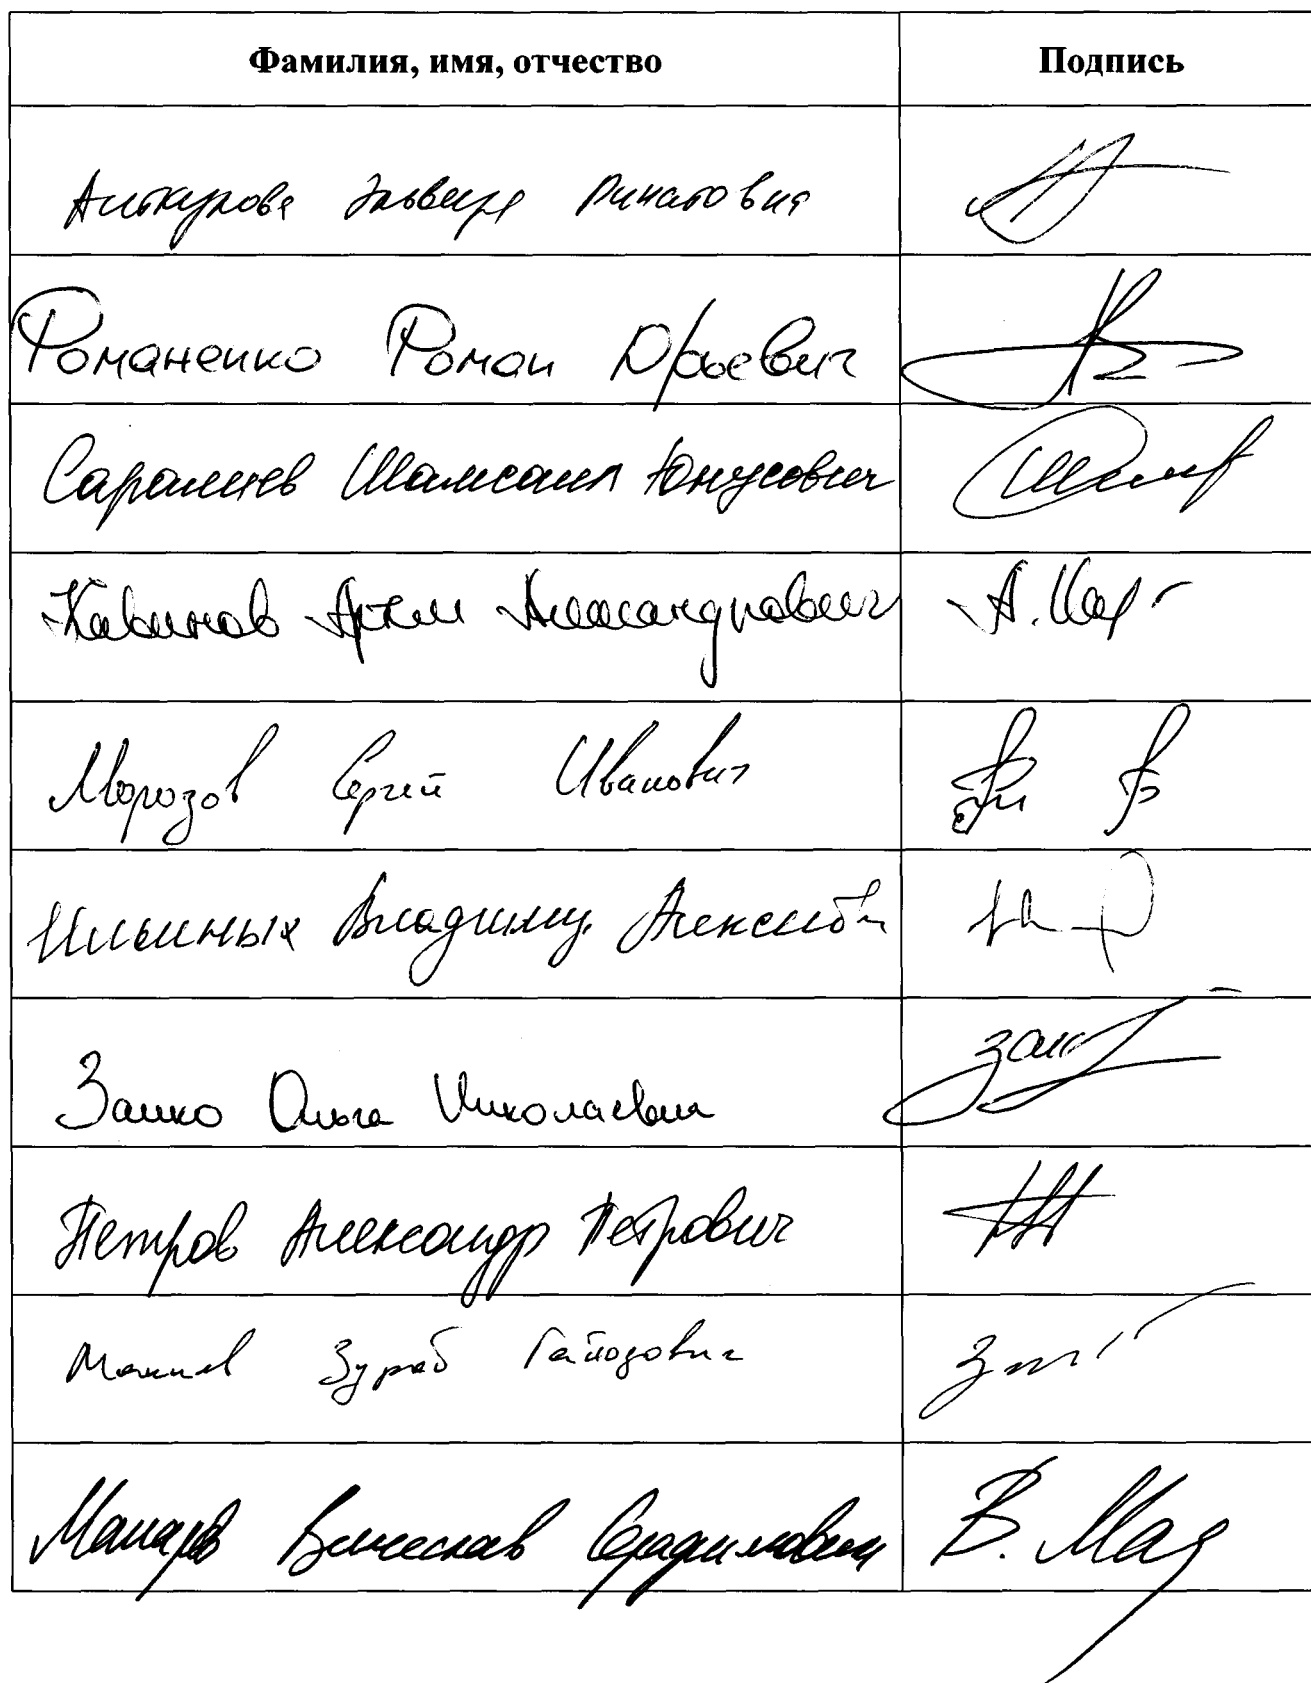 Фамилия, имя, отчество Подпись
Аиткулова Эльвира Ринатовна
Романенко Роман Юрьевич
Саралиев Шамсаил Юнусович
Кавинов Артем Александрович
Морозов Сергей Иванович
Ильиных Владимир
Заико Ольга Николаевна
Петров Александр Петрович
Макиев Зураб Гайозович
Макаров Вячеслав Серафимович